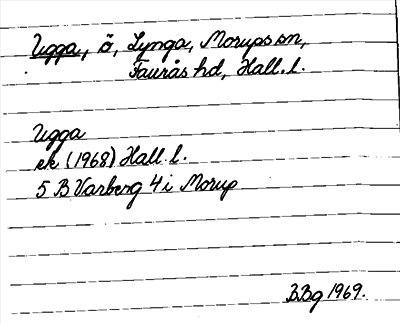 Ugga, ö, Lynga, Morups sn,
Faurås hd, Hall. l.
Ugga
ek (1968) Hall. l.
5 B Varberg 4 i Morup
BBg 1969.